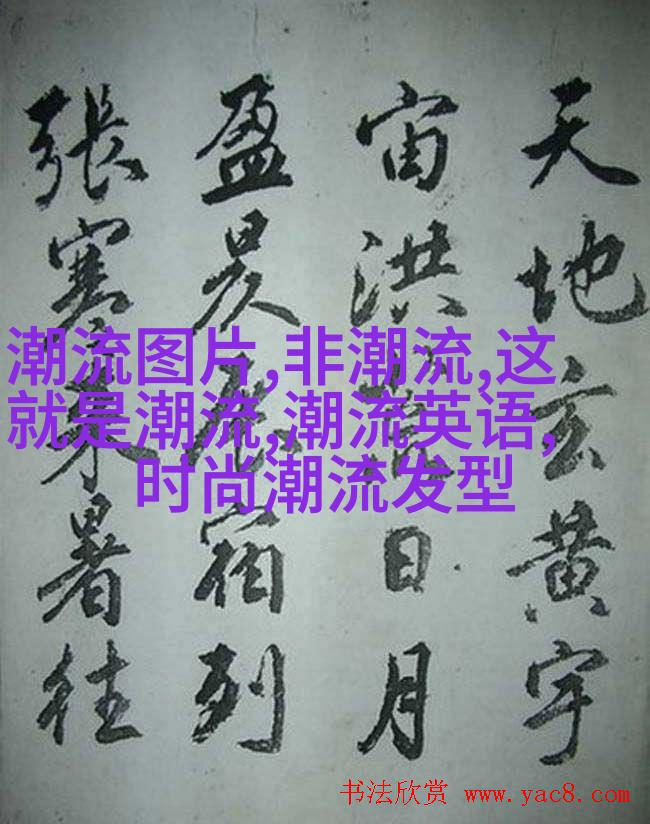 天地玄黄宇
宙洪日月
盈昃宿列
張寒来暑往
潮流图片,非潮流,这
就是潮流,潮流英语,
时尚潮流发型
书法欣赏 www.yac8.com